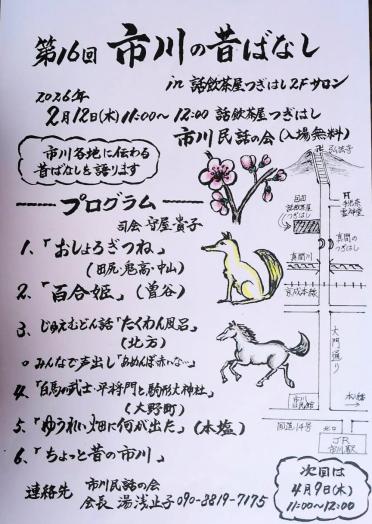 第16回 市川の昔ばなし
in 話飲茶屋つぎはし2Fサロン
2026年
2月12日(木)11:00〜12:00 話飲茶屋つぎはし
市川民話の会(入場無料)
市川各地に伝わる
昔ばなしを語ります
プログラム
司会 守屋貴子
1、「おしょろぎつね」
(田尻・鬼高・中山)
2、「百合姫」(曽谷)
3、じゅえむどん話「たくわん風呂」
(北方)
○みんなで声出し「あめんぼ赤いな…」
4、「白馬の武士・平将門と駒形大神社」
(大野町)
5、「ゆうれい畑に何が出た」(本塩)
6、「ちょっと昔の市川」
連絡先 市川民話の会
会長 湯浅止子 090-8819-7175
弘法寺
手児奈
霊神堂
話飲茶屋
つぎはし
真間の
つぎはし
真間川
京成本線
大門通り
市川
国道14号
北口
JR
市川駅
次回は
4月9日(木)
11:00〜12:00